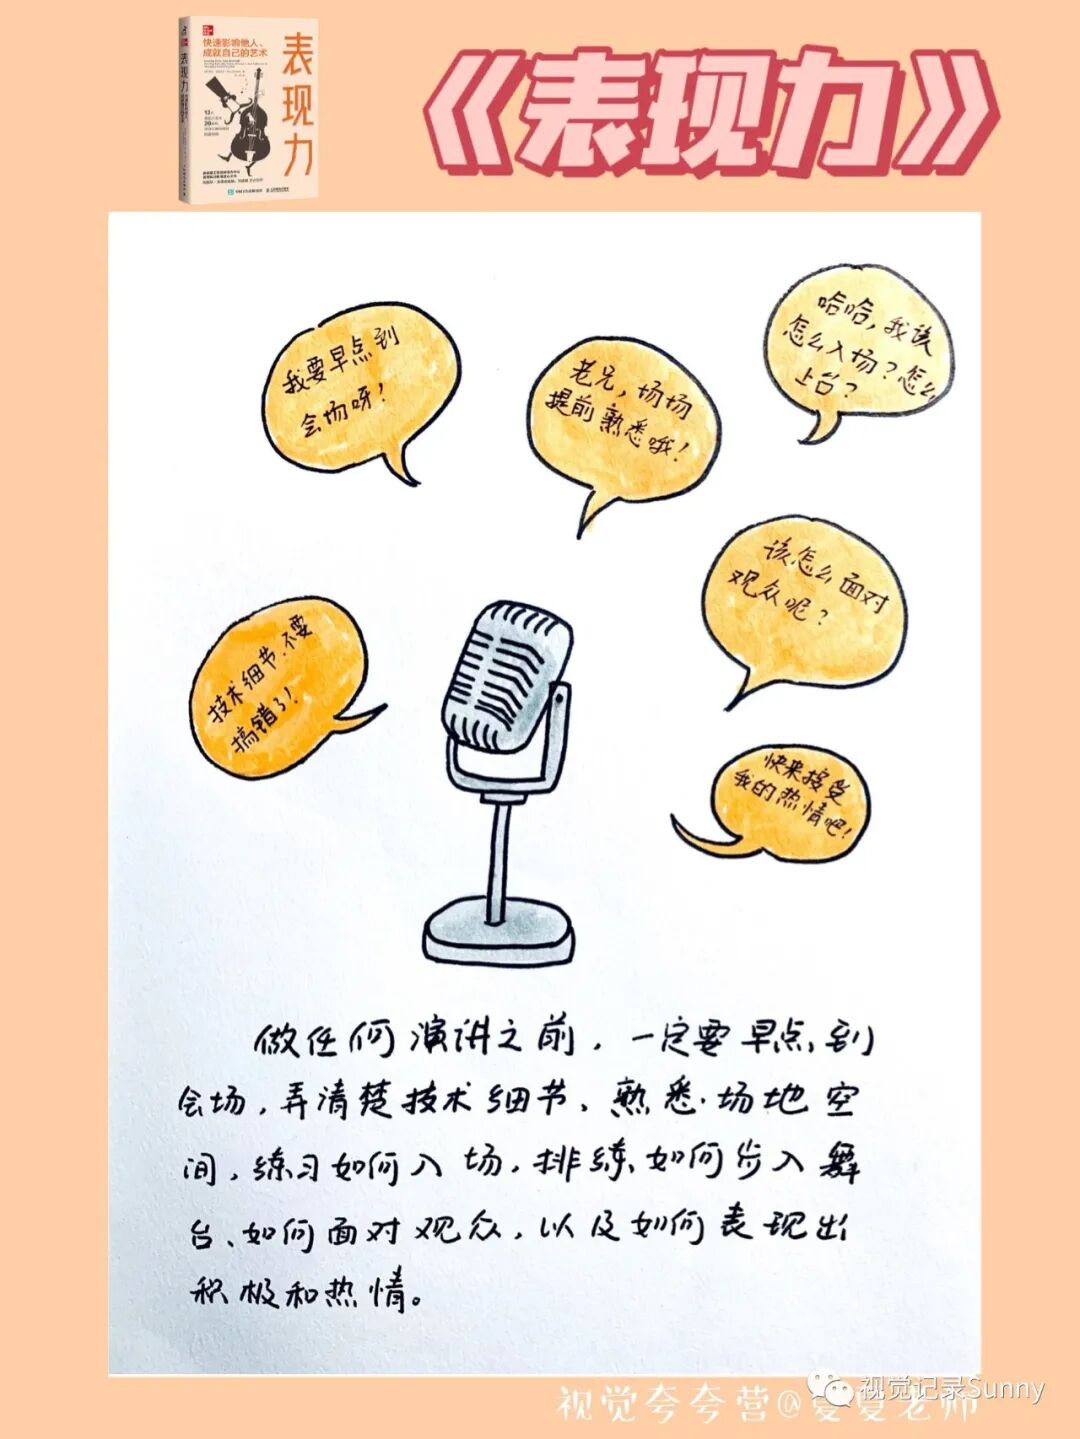 《表现力》
快速影响他人、
成就自己的艺术
表现力
表现力
我要早点到
会场呀！
老兄，场场
提前熟悉哦！
哈哈，我该
怎么入场？怎么
上台？
该怎么面对
观众呢？
技术细节，不要
搞错了！
快来接受
我的热情吧！
做任何演讲之前，一定要早点到
会场，弄清楚技术细节、熟悉场地空
间，练习如何入场，排练如何步入舞
台、如何面对观众，以及如何表现出
积极和热情。
视觉记录Sunny
视觉夸夸营@夏夏老师